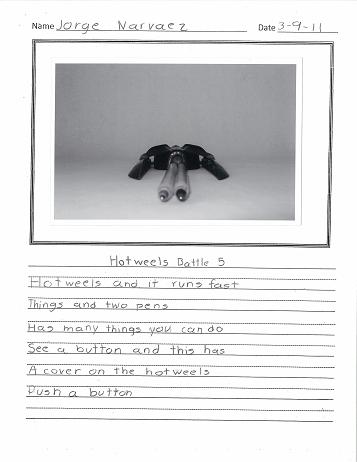 Name Jorge Narvaez Date 3-9-11
Hotweels Battle 5
Hotweels and it runs fast
Things and two pens
Has many things you can do
See a button and this has
A cover on the hotweels
Push a button